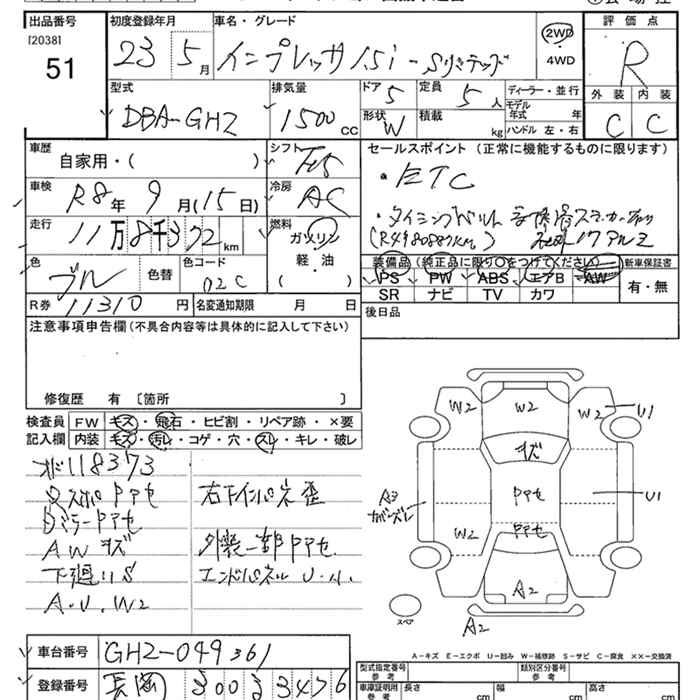 出品番号 初度登録年月 車名・グレード 評価点
[2038] 51
23 5月 インプレッサ 1.5i-Sリミテッド 2WD 4WD
R
型式 排気量 ドア 5 定員 5人 ディーラー・並行 外装 内装
DBA-GH2 1500cc 形状 W 積載 kg モデル年式 年式 ハンドル 左・右 C C
車歴 自家用・( ) シフト F5 セールスポイント (正常に機能するものに限ります)
車検 R8年 9月(15日) 冷房 AC
・ETC
走行 11万8千372km 燃料 ガソリン 軽・油 ( )
・タイミングベルト 交換済ステッカー
(R4 98088km) 17アルミ
色 ブルー 色替 色コード 02C
装備品 (純正品に限り○をつけてください) 新車保証書
PS PW ABS エアB AW 有・無
SR ナビ TV カワ
R券 11310円 名変通知期限 月 日
後日品
注意事項申告欄 (不具合内容等は具体的に記入して下さい)
修復歴 有 [箇所 ]
検査員記入欄 FW キズ・飛石・ヒビ割・リペア跡・×要
内装 キズ・汚レ・コゲ・穴・スレ・キレ・破レ
118373
PPアセ 右下インパネ歪
ミラーPPアセ
AWキズ 外装一部PPアセ
下廻りS エンドパネルU・小
A・U・W2
W2 W2 W2 U1
キズ
A3 PPアセ U1
W2 PPアセ
A2
スペア A2
A-キズ E-エクボ U-凹み W-補修跡 S-サビ C-腐食 ××-交換済
車台番号 GH2-049361
登録番号 長岡 300 3476
型式指定番号 参考 類別区分番号 参考
車庫証明用 参考 長さ cm 幅 cm 高さ cm